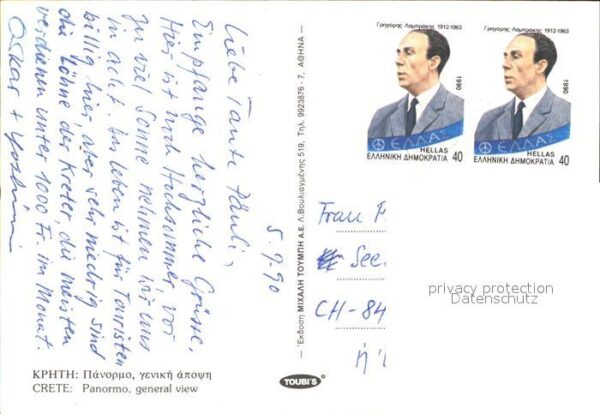 5.9.90
Liebe Tante Päuli,
Empfange herzliche Grüsse.
Hier ist noch Hochsommer, vor
zu viel Sonne nehmen wir uns
in acht. Das Leben ist für Touristen
billig hier, aber sehr niedrig sind
die Löhne der Kreter, die meisten
verdienen unter 1000 Fr. im Monat.
Oskar +
ΚΡΗΤΗ: Πάνορμο, γενική άποψη
CRETE: Panormo, general view
– Έκδοση ΜΙΧΑΛΗ ΤΟΥΜΠΗ Α.Ε. Λ.Βουλιαγμένης 519, Τηλ. 9923876 - 7, ΑΘΗΝΑ –
TOUBI'S
Γρηγόρης Λαμπράκης 1912-1963
1990
ΕΛΛΑΣ
HELLAS
ΕΛΛΗΝΙΚΗ ΔΗΜΟΚΡΑΤΙΑ 40
Γρηγόρης Λαμπράκης 1912-1963
1990
ΕΛΛΑΣ
HELLAS
ΕΛΛΗΝΙΚΗ ΔΗΜΟΚΡΑΤΙΑ 40
Frau P
See
CH-84
privacy protection
Datenschutz